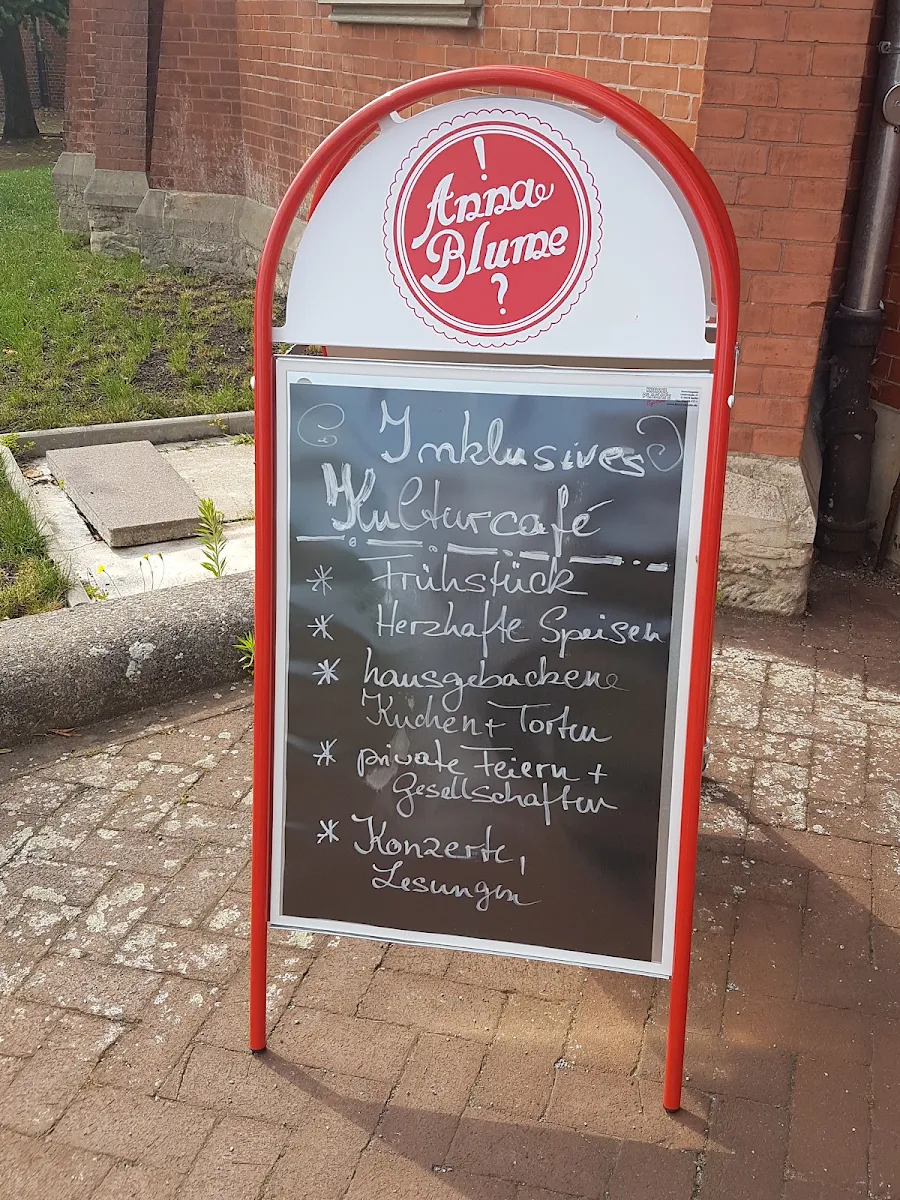 !
Anna
Blume
?
Inklusives
Kulturcafé
* Frühstück
* Herzhafte Speisen
* hausgebackene
Kuchen + Torten
* private Feiern +
Gesellschaften
* Konzerte,
Lesungen